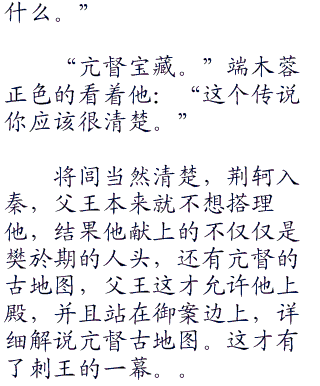 什么。”
“亢督宝藏。”端木蓉
正色的看着他：“这个传说
你应该很清楚。”
将闾当然清楚，荆轲入
秦，父王本来就不想搭理
他，结果他献上的不仅仅是
樊於期的人头，还有亢督的
古地图，父王这才允许他上
殿，并且站在御案边上，详
细解说亢督古地图。这才有
了刺王的一幕。。